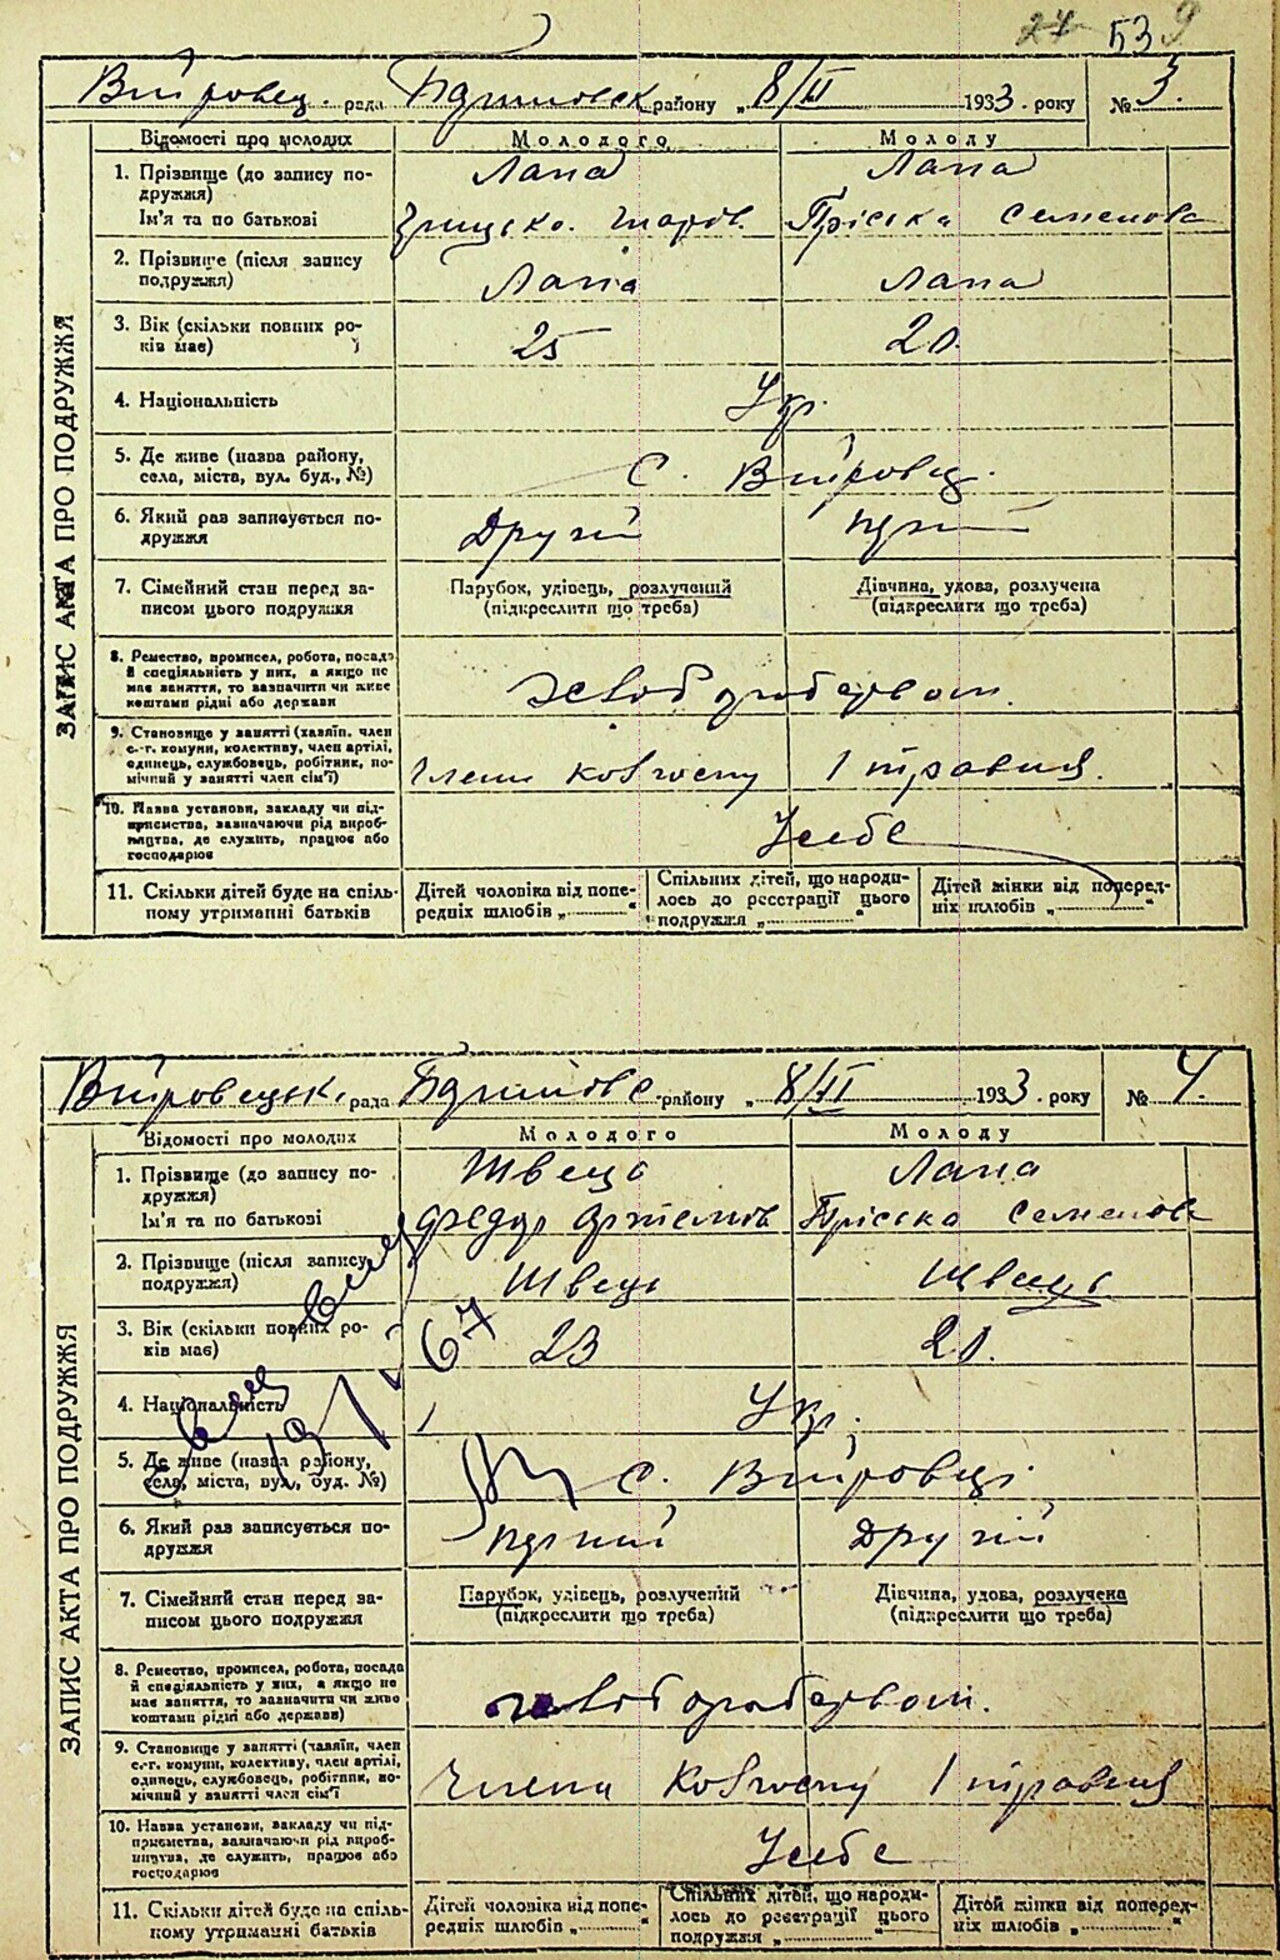 53
рада району „8/III 1933. року № 3.
ЗАПИС АКТА ПРО ПОДРУЖЖЯ
Відомості про молодих
Молодого
Молоду
1. Прізвище (до запису по-
дружжя)
Ім'я та по батькові
Лапа
Лапа
Грицько.
Пріська Семенова
2. Прізвище (після запису
подружжя)
Лапа
Лапа
3. Вік (скільки повних ро-
ків має)
25
20.
4. Національність
Укр.
5. Де живе (назва району,
села, міста, вул. буд., №)
С.
6. Який раз записується по-
дружжя
Другій
7. Сімейний стан перед за-
писом цього подружжя
Парубок, удівець, розлучений
(підкреслити що треба)
Дівчина, удова, розлучена
(підкреслити що треба)
8. Ремество, промисел, робота, посада
й спеціяльність у них, а якщо не
має заняття, то зазначити чи живе
коштами рідні або держави
хлiборобством
9. Становище у занятті (хазяїн, член
с.-г. комуни, колективу, член артілі,
одинець, службовець, робітник, по-
мічний у занятті член сім'ї)
Члени колгоспу 1 травня.
10. Назва установи, закладу чи під-
приємства, зазначаючи рід вироб-
ництва, де служить, працює або
господарює
У себе
11. Скільки дітей буде на спіль-
ному утриманні батьків
Дітей чоловіка від попе-
редніх шлюбів „ “
Спільних дітей, що народи-
лось до реєстрації цього
подружжя „ “
Дітей жінки від поперед-
ніх шлюбів „ “
рада району „8/III 1933. року № 4.
ЗАПИС АКТА ПРО ПОДРУЖЖЯ
Відомості про молодих
Молодого
Молоду
1. Прізвище (до запису по-
дружжя)
Ім'я та по батькові
Швець
Лапа
Федор Артемов
Пріська Семенова
2. Прізвище (після запису
подружжя)
Швець
Швець
3. Вік (скільки повних ро-
ків має)
23
20.
4. Національність
Укр.
5. Де живе (назва району,
села, міста, вул., буд. №)
С.
6. Який раз записується по-
дружжя
Перший
Другій
7. Сімейний стан перед за-
писом цього подружжя
Парубок, удівець, розлучений
(підкреслити що треба)
Дівчина, удова, розлучена
(підкреслити що треба)
8. Ремество, промисел, робота, посада
й спеціяльність у них, а якщо не
має заняття, то зазначити чи живе
коштами рідні або держави)
хлiборобством.
9. Становище у занятті (хазяїн, член
с.-г. комуни, колективу, член артілі,
одинець, службовець, робітник, по-
мічний у занятті член сім'ї
Члени колгоспу 1 травня
10. Назва установи, закладу чи під-
приємства, зазначаючи рід вироб-
ництва, де служить, працює або
господарює
У себе
11. Скільки дітей буде на спіль-
ному утриманні батьків
Дітей чоловіка від попе-
редніх шлюбів „ “
Спільних дітей, що народи-
лось до реєстрації цього
подружжя „ “
Дітей жінки від поперед-
ніх шлюбів „ “